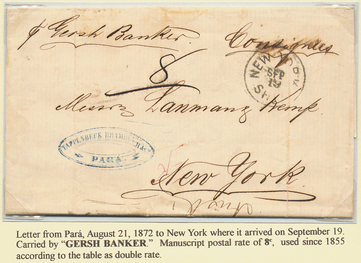 pr Gersh Banker. Consignees
8
NEW
SHIP
SEP
19
Messrs Lanman & Kemp
TAPPENBECK BRAMBEER & C
PARA
New York.
Letter from Pará, August 21, 1872 to New York where it arrived on September 19.
Carried by “GERSH BANKER.” Manuscript postal rate of 8c, used since 1855
according to the table as double rate.